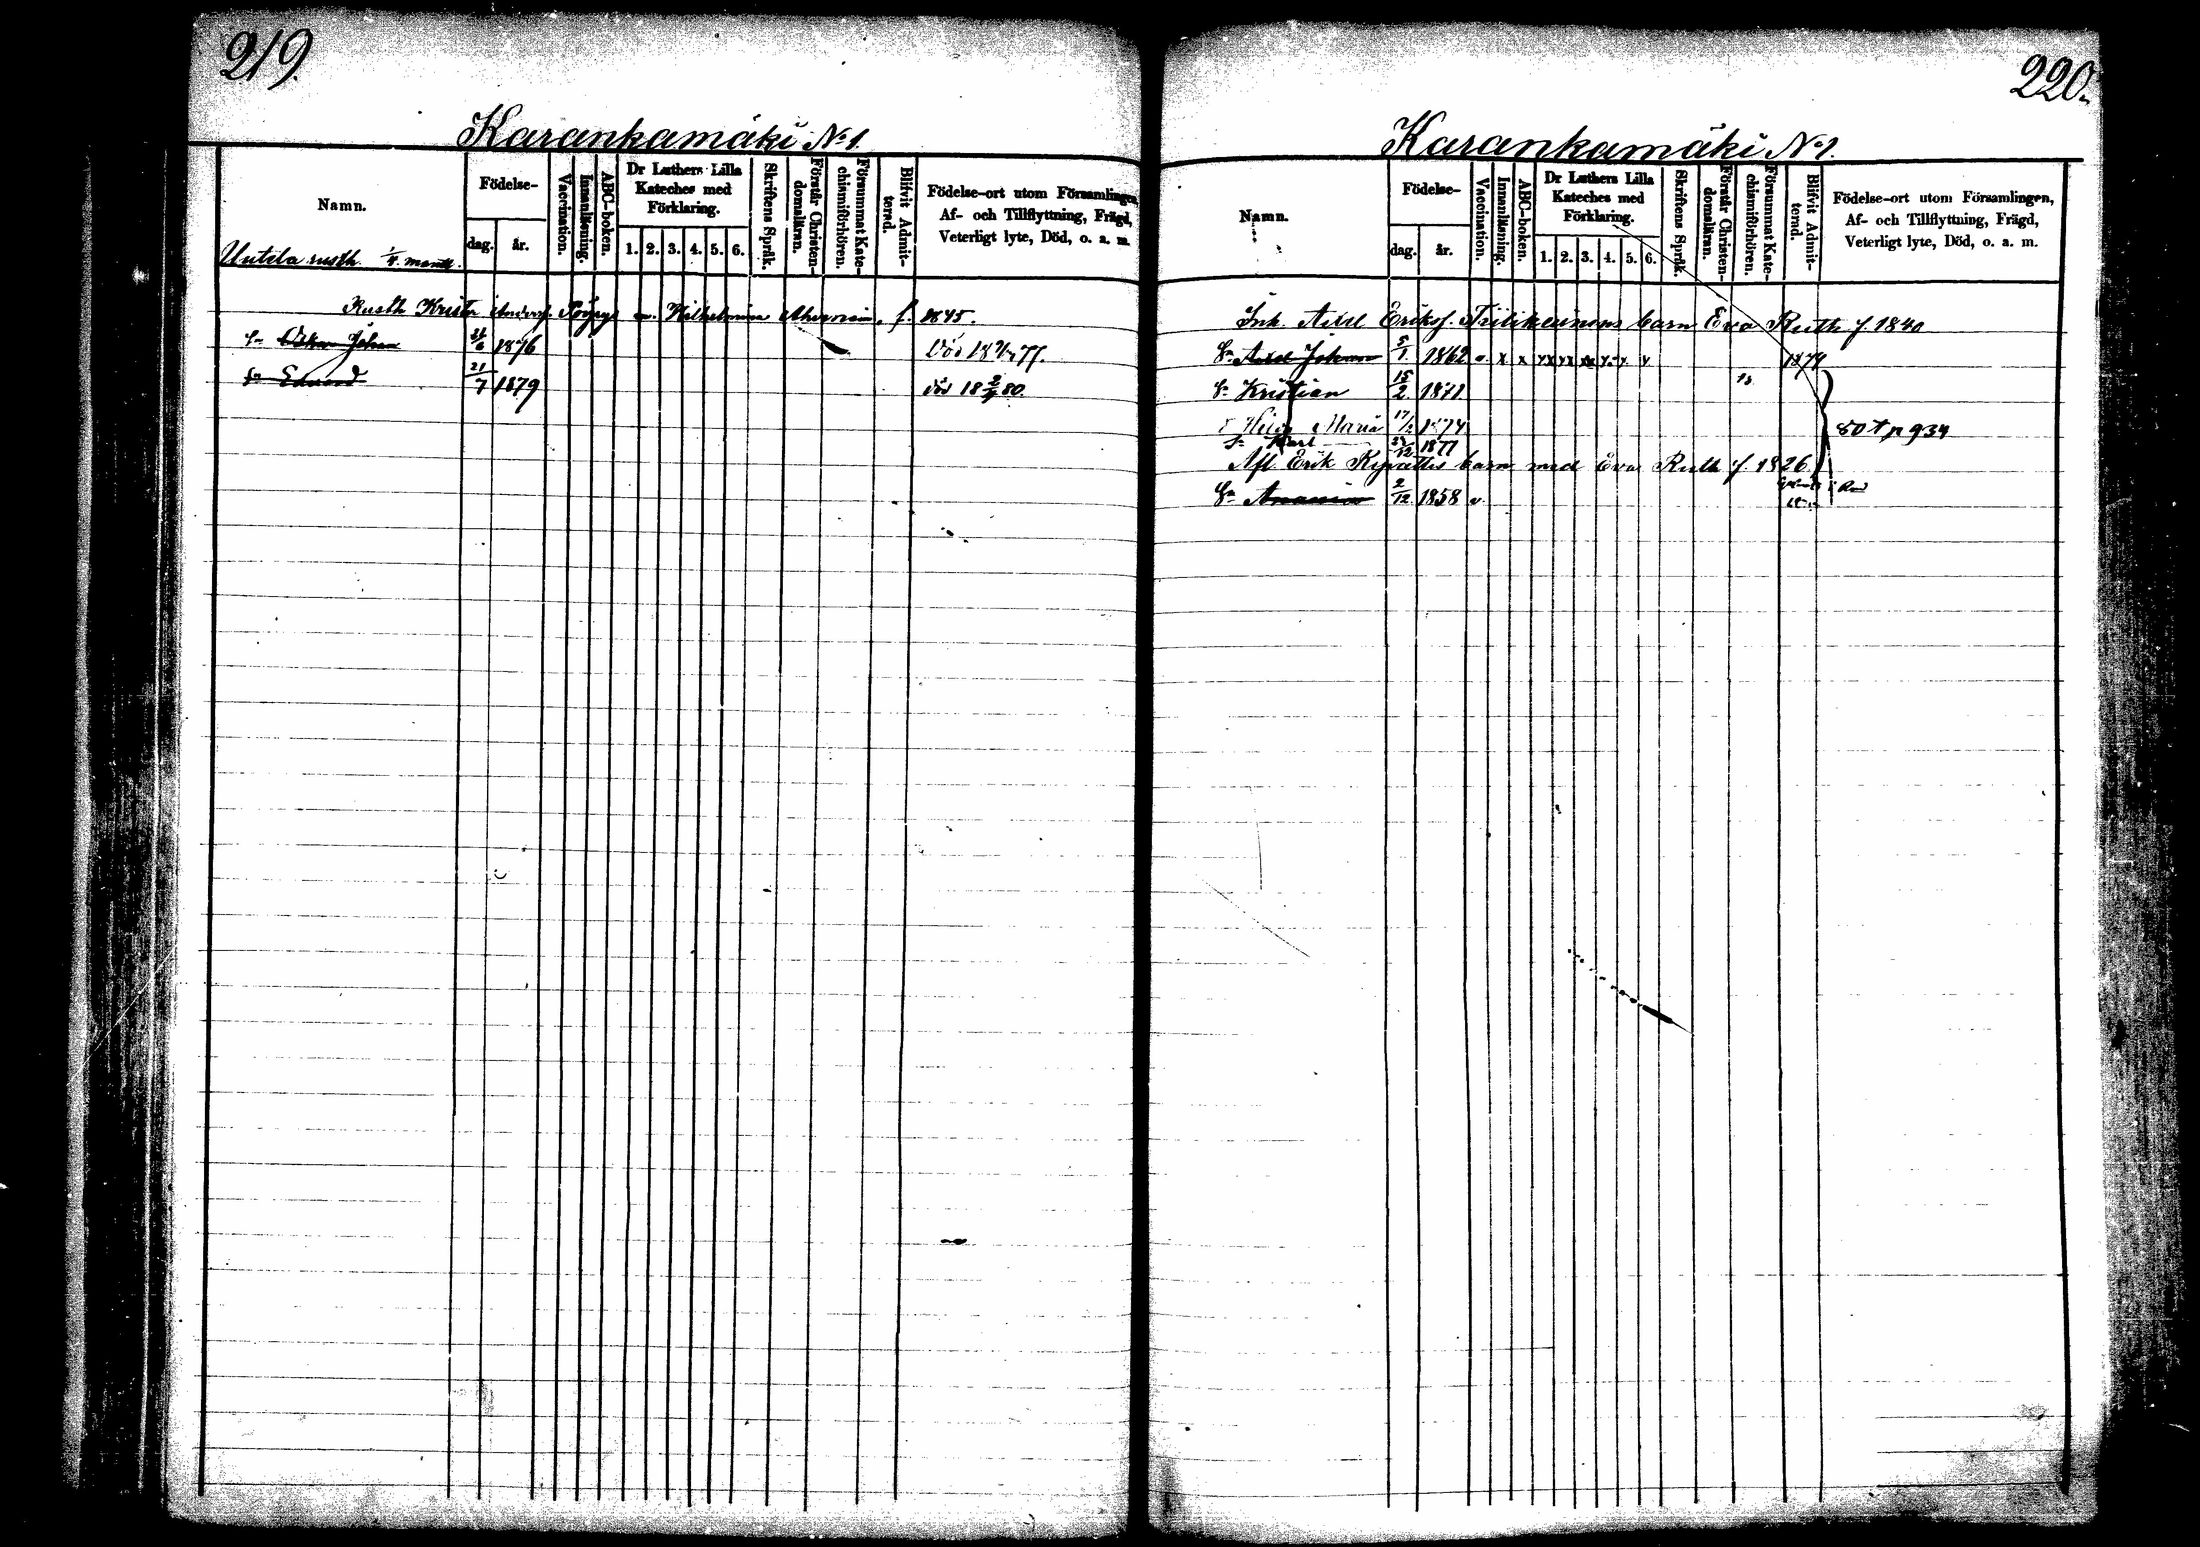 219.
Karankamäki No 1.
Namn.
Födelse-
dag.
år.
Vaccination.
Innanläsning.
ABC-boken.
Dr Luthers Lilla
Kateches med
Förklaring.
1. 2. 3. 4. 5. 6.
Skriftens Språk.
Förstår Christen-
domsläran.
Försummat Kate-
chismiförhören.
Blifvit Admit-
terad.
Födelse-ort utom Församlingen,
Af- och Tillflyttning, Frägd,
Veterligt lyte, Död, o. a. m.
Uutela rusth. 1/4 mantl.
Rusth Krister m. Wilhelmina f. 1845.
Sn Oskar Johan 1876 Död
Sn Edvard 21/7 1879 död 18 80.
220.
Karankamäki No 1.
Namn.
Födelse-
dag.
år.
Vaccination.
Innanläsning.
ABC-boken.
Dr Luthers Lilla
Kateches med
Förklaring.
1. 2. 3. 4. 5. 6.
Skriftens Språk.
Förstår Christen-
domsläran.
Försummat Kate-
chismiförhören.
Blifvit Admit-
terad.
Födelse-ort utom Församlingen,
Af- och Tillflyttning, Frägd,
Veterligt lyte, Död, o. a. m.
Inh. Axel Eriks. barn Eva Ruth f. 1840
Sn Axel Johan 5/1 1862 v. x x 1879
Sn Kristian 15/2 1871
Maria 17/2 1874 80 p 934
Sn Karl 1877
Afl. Erik barn med Eva Ruth f. 1826
Sn 2/12 1858 v.